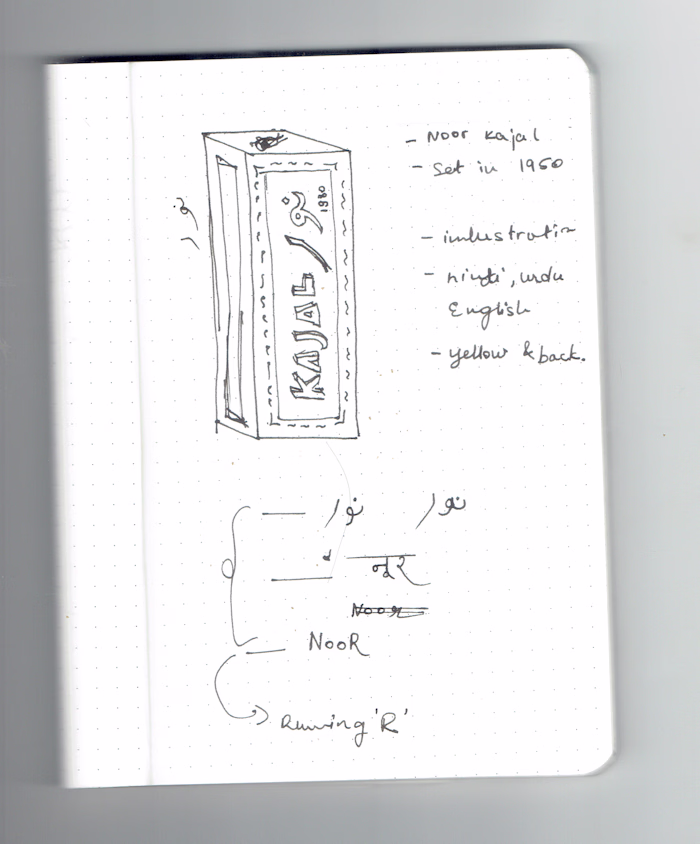 - Noor Kajal
- Set in 1950
نور
نور
1980
KAJAL
- hindi, urdu
English
- yellow & back.
نور نور
नूर
Noor
NOOR
Running 'R'